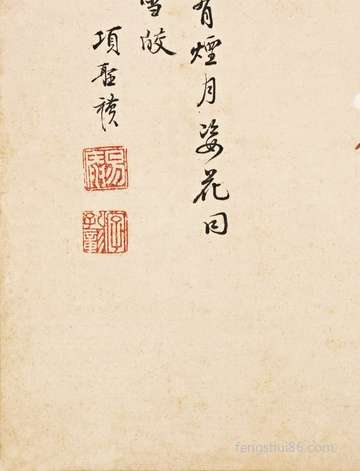 有煙月姿花同
雪皎
項聖謨
字孔彰
fengshui86.com